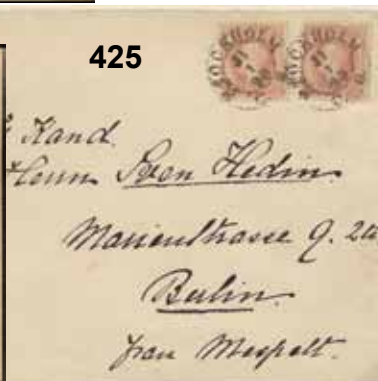 425
STOCKHOLM STOCKHOLM
Kand.
Herrn Sven Hedin
Marienstrasse 9. 2a
Berlin.
frau